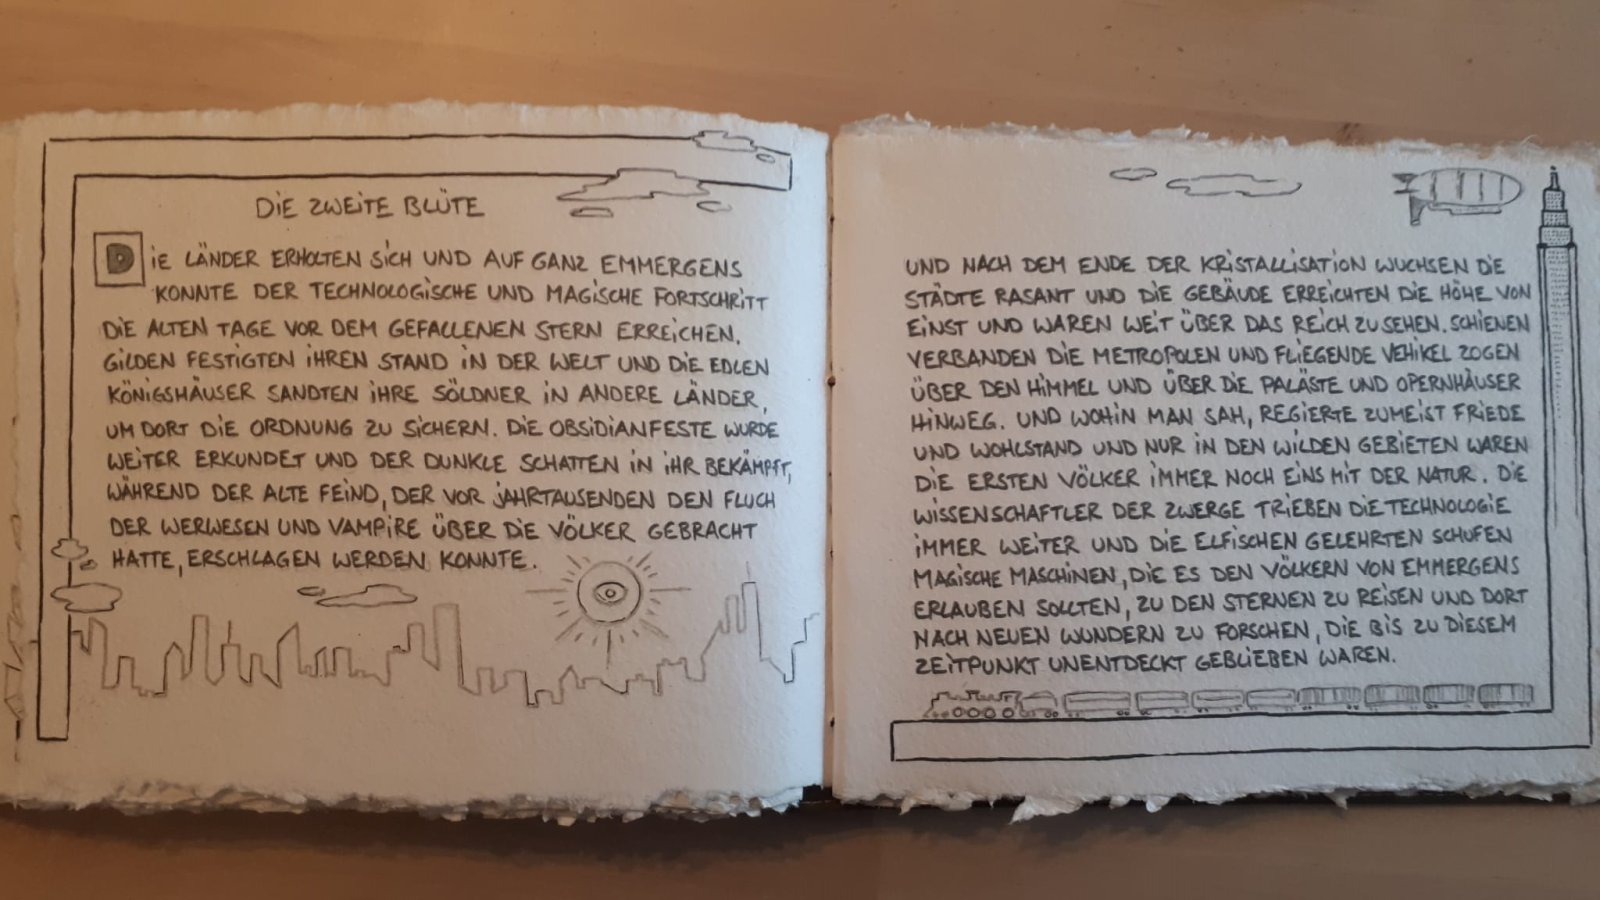 DIE ZWEITE BLÜTE
DIE LÄNDER ERHOLTEN SICH UND AUF GANZ EMMERGENS
KONNTE DER TECHNOLOGISCHE UND MAGISCHE FORTSCHRITT
DIE ALTEN TAGE VOR DEM GEFALLENEN STERN ERREICHEN.
GILDEN FESTIGTEN IHREN STAND IN DER WELT UND DIE EDLEN
KÖNIGSHÄUSER SANDTEN IHRE SÖLDNER IN ANDERE LÄNDER,
UM DORT DIE ORDNUNG ZU SICHERN. DIE OBSIDIANFESTE WURDE
WEITER ERKUNDET UND DER DUNKLE SCHATTEN IN IHR BEKÄMPFT,
WÄHREND DER ALTE FEIND, DER VOR JAHRTAUSENDEN DEN FLUCH
DER WERWESEN UND VAMPIRE ÜBER DIE VÖLKER GEBRACHT
HATTE, ERSCHLAGEN WERDEN KONNTE.
UND NACH DEM ENDE DER KRISTALLISATION WUCHSEN DIE
STÄDTE RASANT UND DIE GEBÄUDE ERREICHTEN DIE HÖHE VON
EINST UND WAREN WEIT ÜBER DAS REICH ZU SEHEN. SCHIENEN
VERBANDEN DIE METROPOLEN UND FLIEGENDE VEHIKEL ZOGEN
ÜBER DEN HIMMEL UND ÜBER DIE PALÄSTE UND OPERNHÄUSER
HINWEG. UND WOHIN MAN SAH, REGIERTE ZUMEIST FRIEDE
UND WOHLSTAND UND NUR IN DEN WILDEN GEBIETEN WAREN
DIE ERSTEN VÖLKER IMMER NOCH EINS MIT DER NATUR. DIE
WISSENSCHAFTLER DER ZWERGE TRIEBEN DIE TECHNOLOGIE
IMMER WEITER UND DIE ELFISCHEN GELEHRTEN SCHUFEN
MAGISCHE MASCHINEN, DIE ES DEN VÖLKERN VON EMMERGENS
ERLAUBEN SOLLTEN, ZU DEN STERNEN ZU REISEN UND DORT
NACH NEUEN WUNDERN ZU FORSCHEN, DIE BIS ZU DIESEM
ZEITPUNKT UNENTDECKT GEBLIEBEN WAREN.